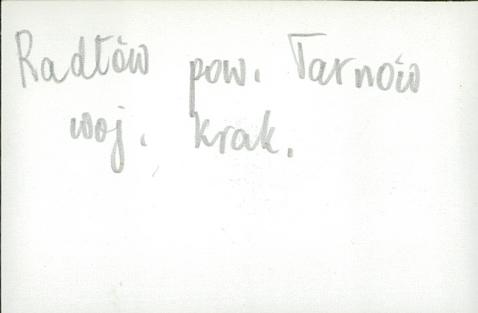 Radłów pow. Tarnów
woj. krak.